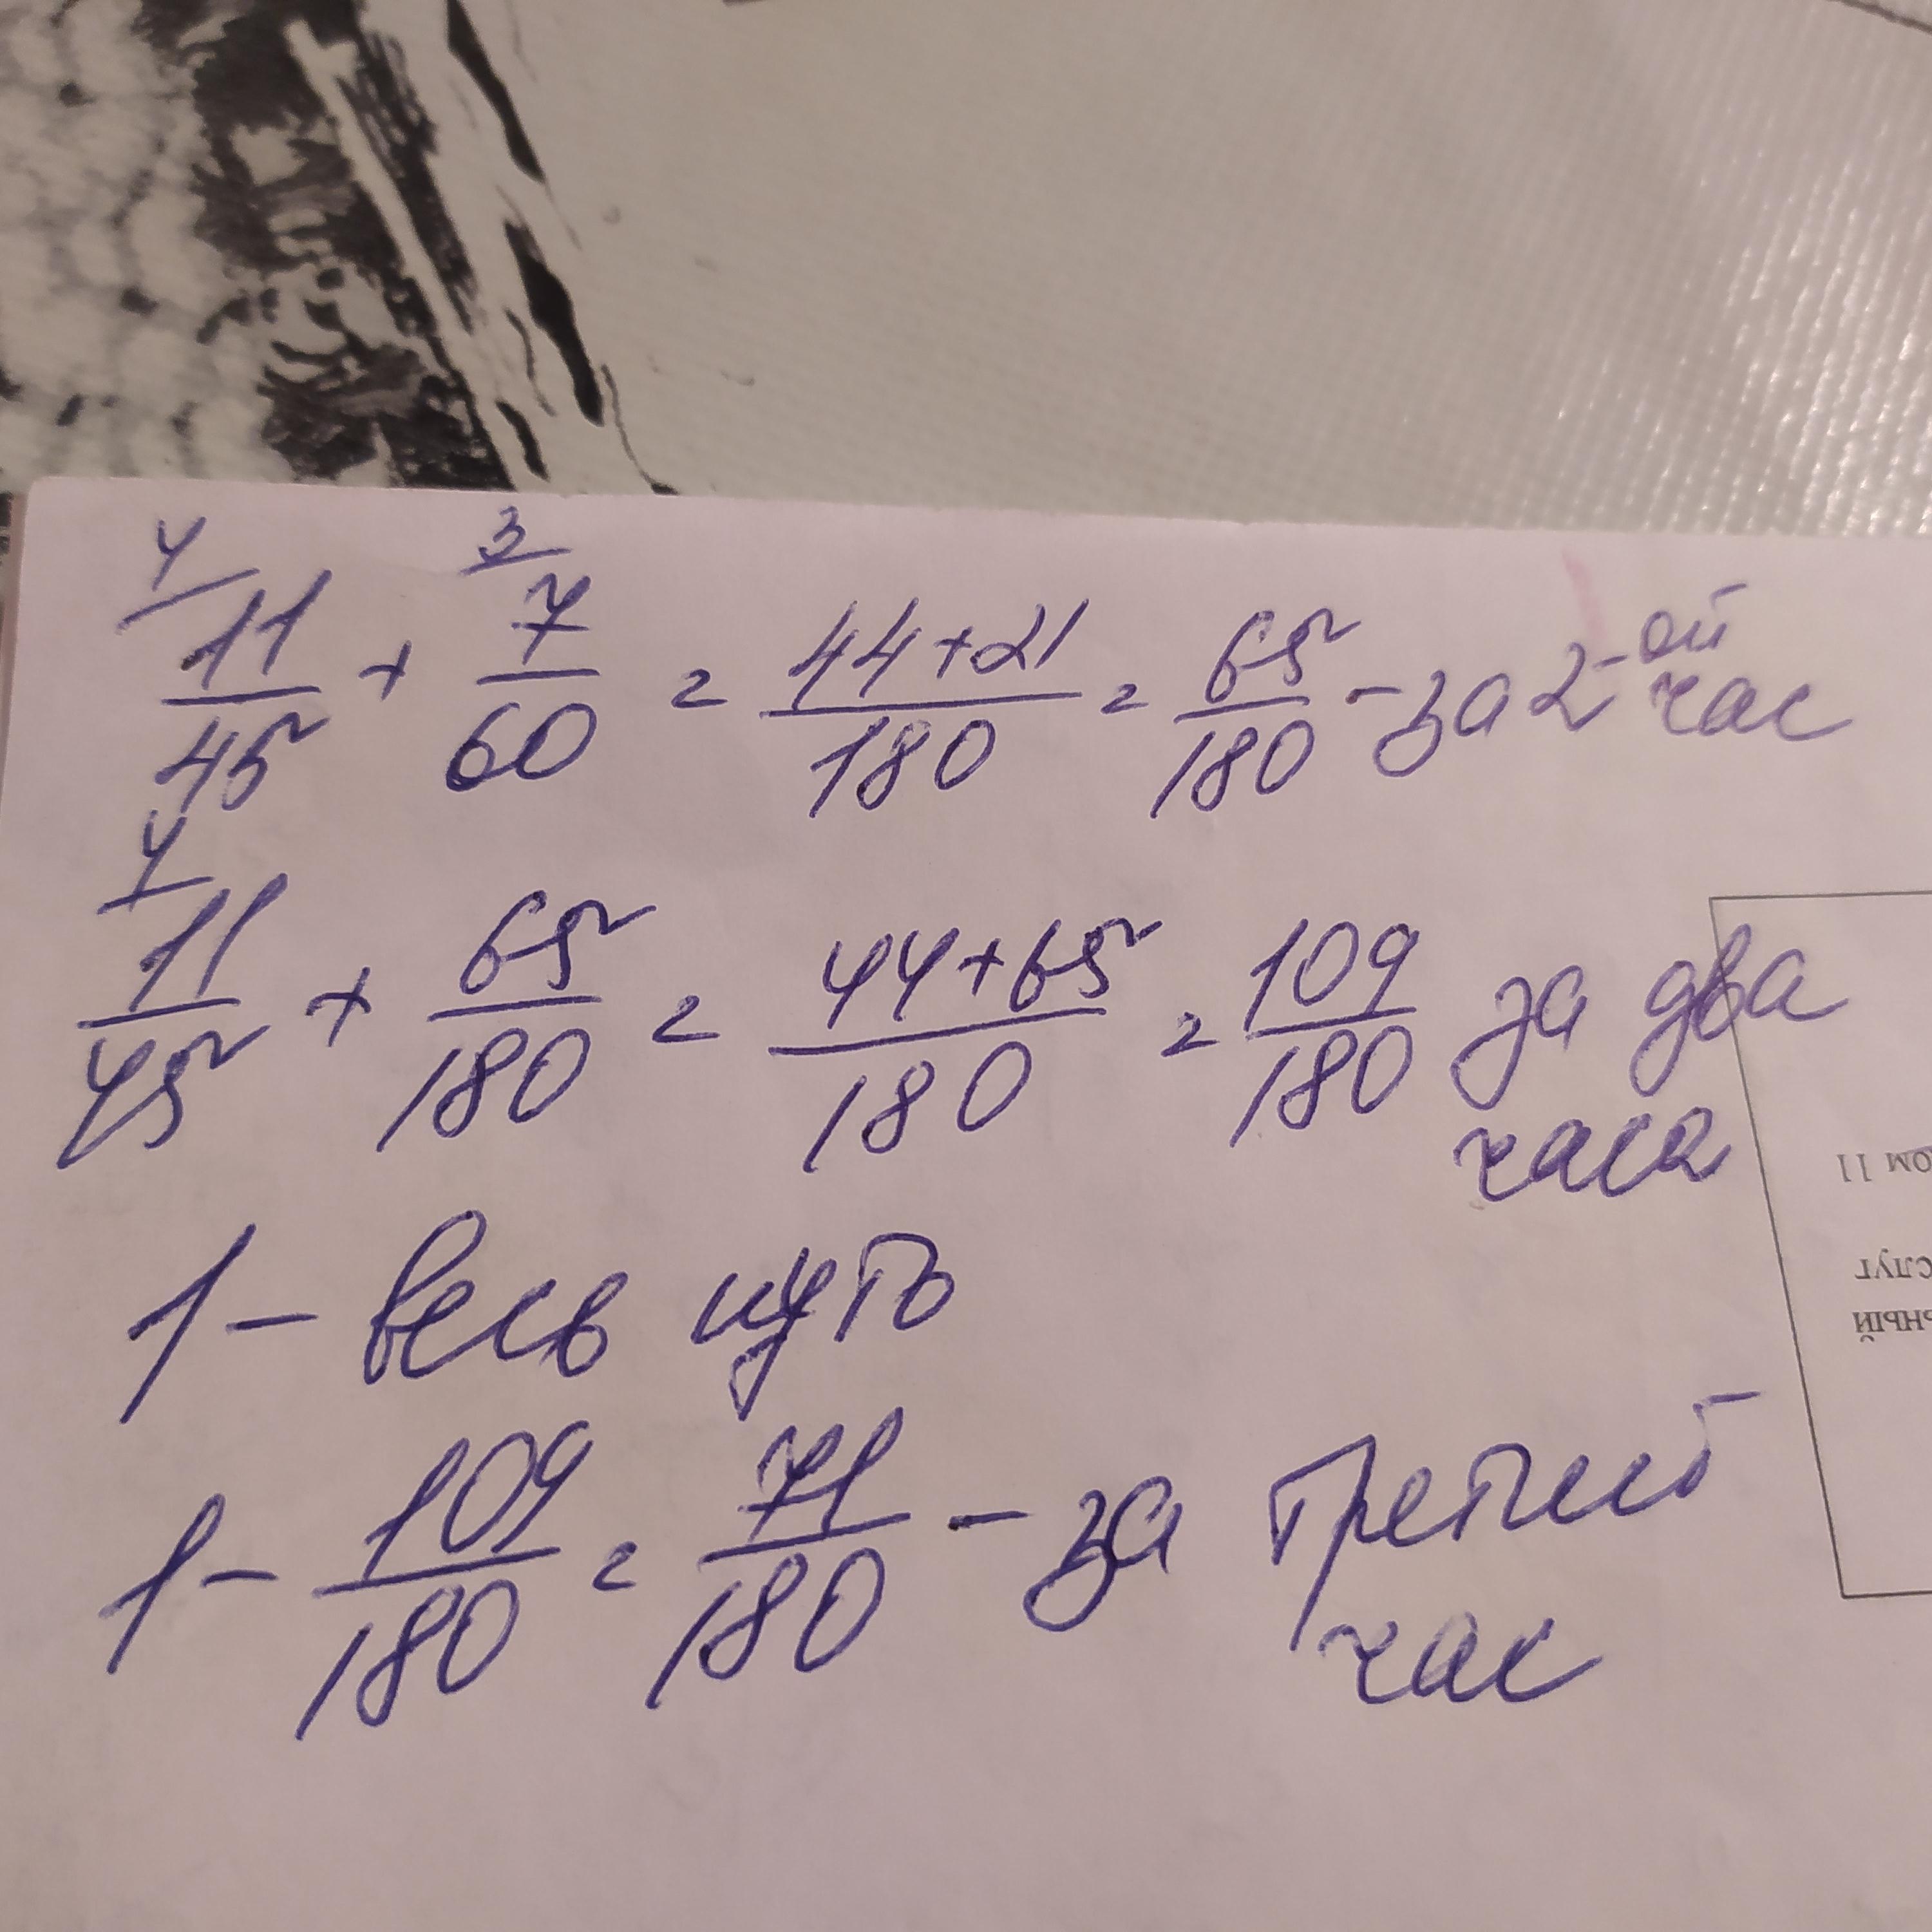 4/ 11/45 + 3/ 7/60 = 44+21/180 = 65/180 - за 2-ой час
4/ 11/45 + 65/180 = 44+65/180 = 109/180 за два
часа
1 - весь путь
1 - 109/180 = 71/180 - за третий
час
ом 11
слуг
ьный